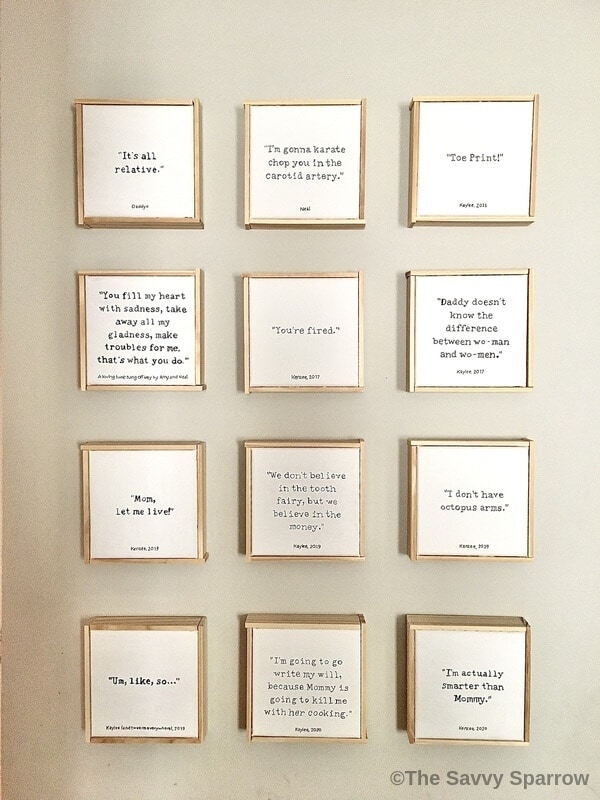 "It's all
relative."
"I'm gonna karate
chop you in the
carotid artery."
Neal
"Toe Print!"
Kaylee, 2011
"You fill my heart
with sadness, take
away all my
gladness, make
troubles for me,
that's what you do."
A loving tune sung off key by Amy and Neal
"You're fired."
Kensee, 2017
"Daddy doesn't
know the
difference
between wo-man
and wo-men."
Kaylee, 2017
"Mom,
let me live!"
Kensee, 2019
"We don't believe
in the tooth
fairy, but we
believe in the
money."
Kaylee, 2019
"I don't have
octopus arms."
Kensee, 2019
"Um, like, so..."
Kaylee (and tweens everywhere), 2019
"I'm going to go
write my will,
because Mommy is
going to kill me
with her cooking."
Kaylee, 2020
"I'm actually
smarter than
Mommy."
Kensee, 2020
©The Savvy Sparrow